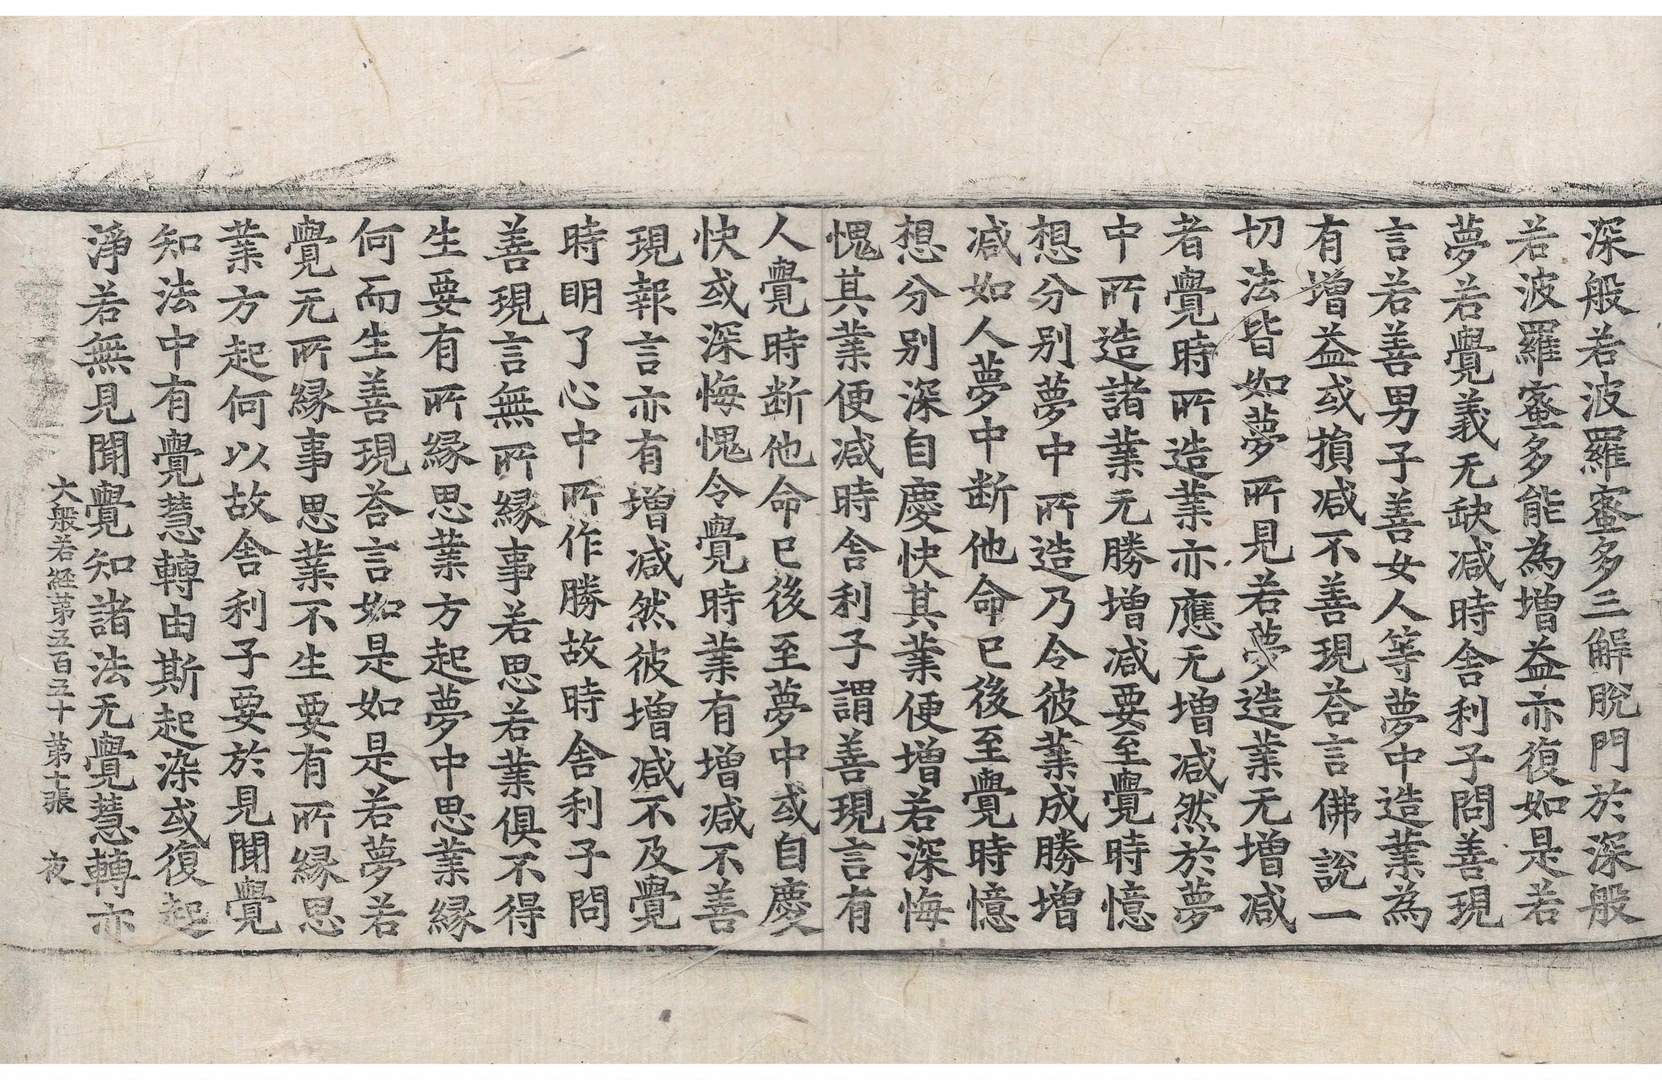 深般若波羅蜜多三解脫門於深般
若波羅蜜多能為增益亦復如是若
夢若覺義无缺減時舍利子問善現
言若善男子善女人等夢中造業為
有增益或損減不善現荅言佛說一
切法皆如夢所見若夢造業无增減
者覺時所造業亦應无增減然於夢
中所造諸業无勝增減要至覺時憶
想分別夢中所造乃令彼業成勝增
減如人夢中断他命已後至覺時憶
想分別深自慶快其業便增若深悔
愧其業便減時舍利子謂善現言有
人覺時断他命已後至夢中或自慶
快或深悔愧令覺時業有增減不善
現報言亦有增減然彼增減不及覺
時明了心中所作勝故時舍利子問
善現言無所緣事若思若業俱不得
生要有所緣思業方起夢中思業緣
何而生善現荅言如是如是若夢若
覺无所緣事思業不生要有所緣思
業方起何以故舍利子要於見聞覺
知法中有覺慧轉由斯起染或復起
淨若無見聞覺知諸法无覺慧轉亦
大般若経第五百五十 第十張 夜